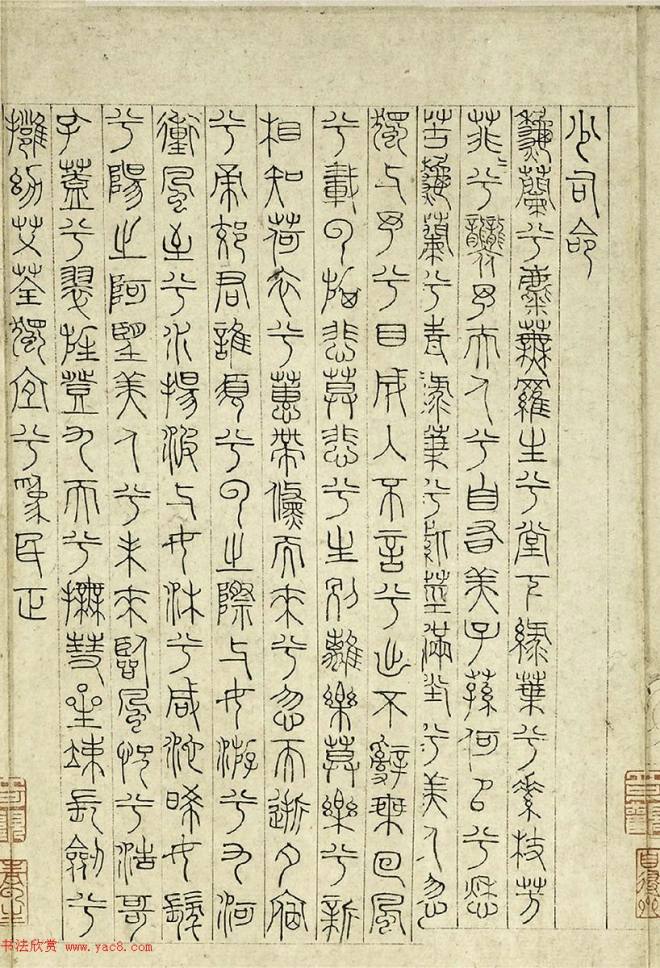 少司命
秋蘭兮麋蕪羅生兮堂下綠葉兮素枝芳
菲〻兮襲予夫人兮自有美子蓀何以兮愁
苦秋蘭兮青綠葉兮紫莖滿堂兮美人忽
獨与予兮目成入不言兮出不辭乗回風
兮載雲旗悲莫悲兮生別離樂莫樂兮新
相知荷衣兮蕙帶儵而來兮忽而逝夕宿
兮帝郊君誰須兮雲之際与女游兮九河
衝風至兮水揚波与女沐兮咸池晞女髮
兮陽之阿望美人兮未來臨風怳兮浩哥
孔蓋兮翠旌登九天兮撫彗星竦長劍兮
擁幼艾荃獨宜兮為民正
书法欣赏 www.yac8.com